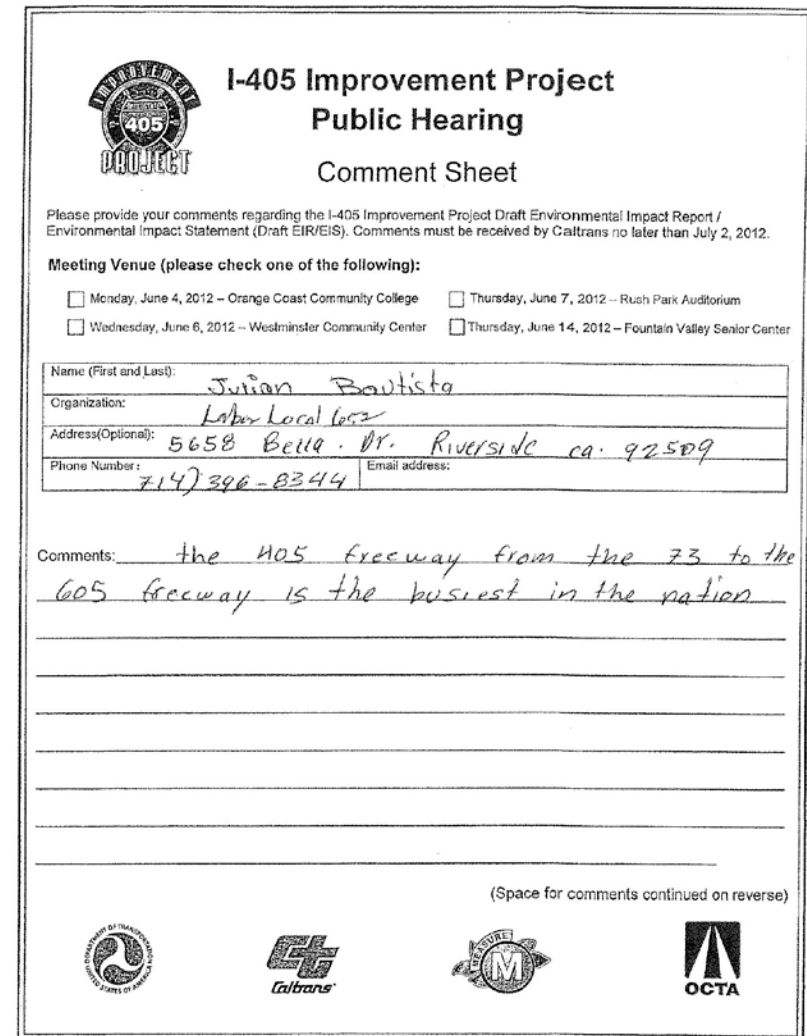 IMPROVEMENT
405
PROJECT
I-405 Improvement Project
Public Hearing
Comment Sheet
Please provide your comments regarding the I-405 Improvement Project Draft Environmental Impact Report /
Environmental Impact Statement (Draft EIR/EIS). Comments must be received by Caltrans no later than July 2, 2012.
Meeting Venue (please check one of the following):
Monday, June 4, 2012 – Orange Coast Community College
Thursday, June 7, 2012 – Rush Park Auditorium
Wednesday, June 6, 2012 – Westminster Community Center
Thursday, June 14, 2012 – Fountain Valley Senior Center
Name (First and Last): Julian Bautista
Organization: Labor Local 652
Address(Optional): 5658 Bella. Dr. Riverside ca. 92509
Phone Number: 714) 396-8344 Email address:
Comments: the 405 freeway from the 73 to the
605 freeway is the busiest in the nation
(Space for comments continued on reverse)
DEPARTMENT OF TRANSPORTATION
UNITED STATES OF AMERICA
Caltrans
MEASURE
M
OCTA